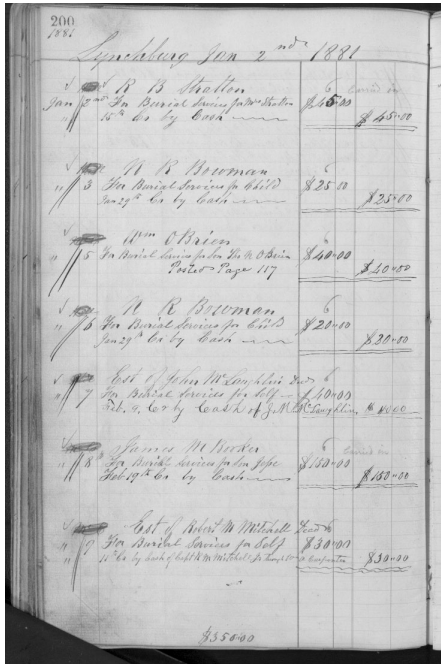 200
1881
Lynchburg Jan 2nd 1881
R B Stratton 6
Jan 2nd For Burial Services for Mrs Stratton $45.00
15th Cr by Cash $45.00
N R Bowman 6
" 3 For Burial Services for Child $25.00
Jan 29th Cr by Cash $25.00
Wm OBrien 6
" 5 For Burial Services for Son Thos N OBrien $40.00
Posted Page 117 $40.00
N R Bowman 6
" 6 For Burial Services for Child $20.00
Jan 29th Cr by Cash $20.00
Est of John McLaughlin Decd 6
" 7 For Burial Services for Self $40.00
Feb. 9, Cr by Cash of J. M. McLaughlin $40.00
James M Booker 6
" 8th For Burial Services for Son Jesse $150.00
Feb 19th Cr by Cash $150.00
Est of Robert M Mitchell Decd 6
" 9 For Burial Services for Self $30.00
15th Cr by Cash of Capt R M Mitchell Jr $30.00
$350.00